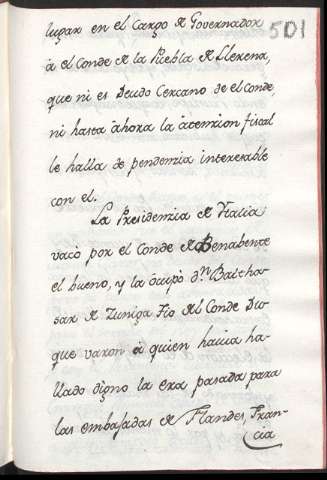 501
lugar en el Cargo de Governador
à el Conde de la Puebla de Llerena,
que ni es Deudo Cercano de el Conde,
ni hasta ahora la atenzion fiscal
le halla de pendenzia
con el.
La Presidenzia de Italia
vacò por el Conde de Benabente
el bueno, y la òcupò Dn Balcha-
sar de Zuniga Tio del Conde Du-
que varon à quien havia ha-
llado digno la era pasada para
las embajadas de Flandes, Fran-
cia